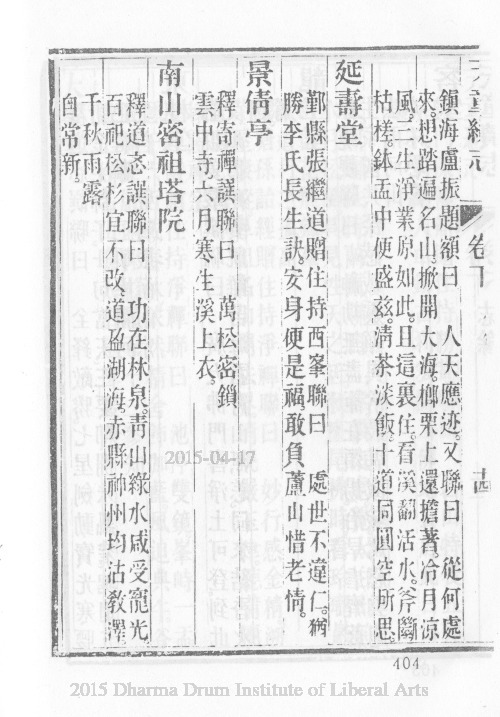 天童續志 卷下 十四
鎮海盧振題額曰 人天應迹。又聯曰 從何處
來。想踏遍名山。掀開大海。榔栗上還擔著。冷月涼
風。三生淨業原如此。且這裏住。看溪翻活水。斧斷
枯槎。鉢盂中便盛茲。清茶淡飯。十道同圓空所思。
延壽堂
鄞縣張繼道贈住持西峯聯曰 處世不違仁。猶
勝李氏長生訣。安身便是福。敢負蘆山惜老情。
景倩亭
釋寄禪譔聯曰 萬松密鎖
雲中寺。六月寒生溪上衣。
南山密祖塔院
釋道忞譔聯曰 功在林泉。靑山綠水咸受寵光
百祀松杉宜不改。道盈湖海。赤縣神州均沾敎澤
千秋雨露
自常新。
2015-04-17
404
2015 Dharma Drum Institute of Liberal Arts